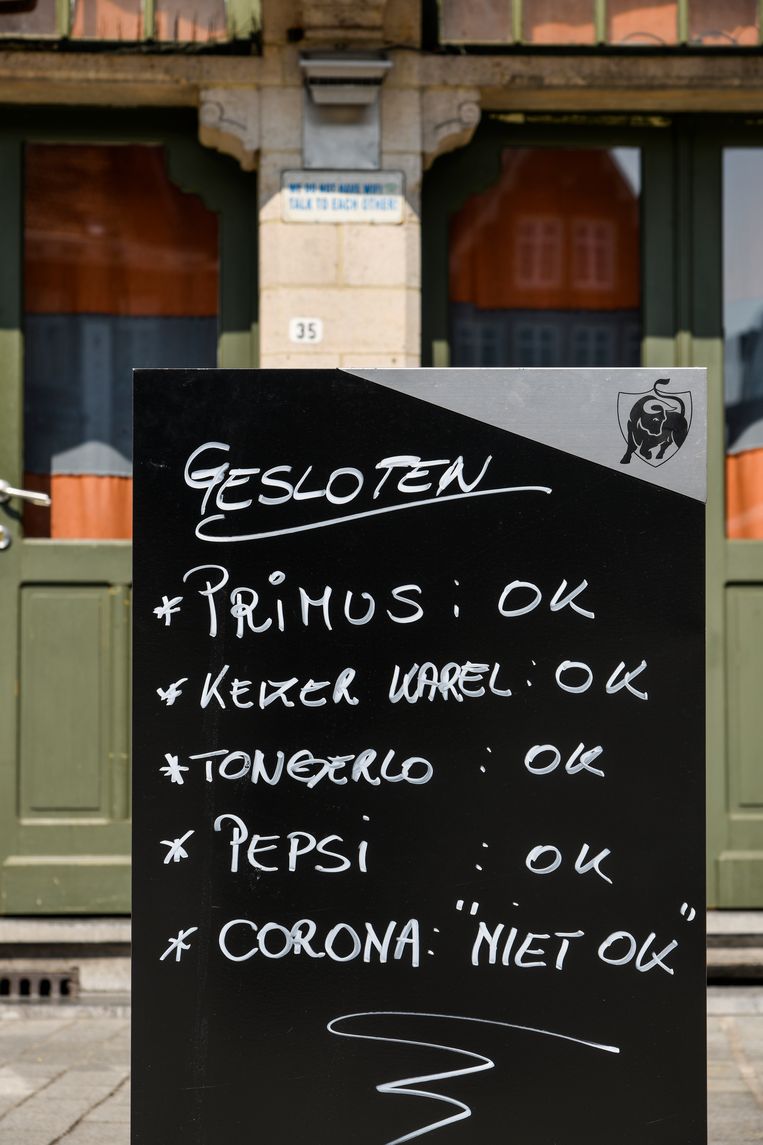 WE DO NOT HAVE WIFI
TALK TO EACH OTHER!
35
GESLOTEN
* PRIMUS : OK
* KEIZER KAREL : OK
* TONGERLO : OK
* PEPSI : OK
* CORONA : "NIET OK"